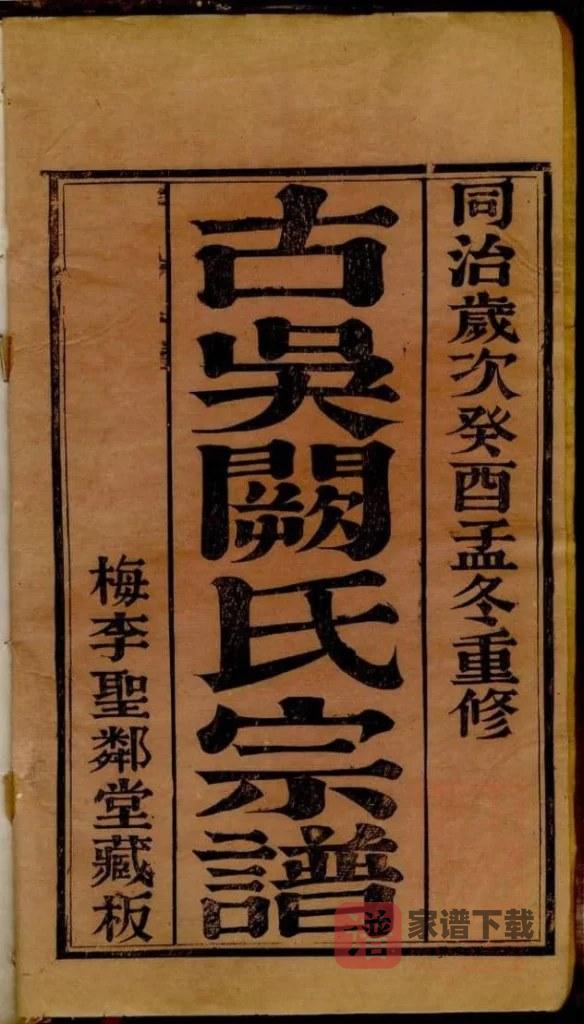 同治歲次癸酉孟冬重修
古吳闕氏宗譜
梅李聖鄰堂藏板
家谱下载